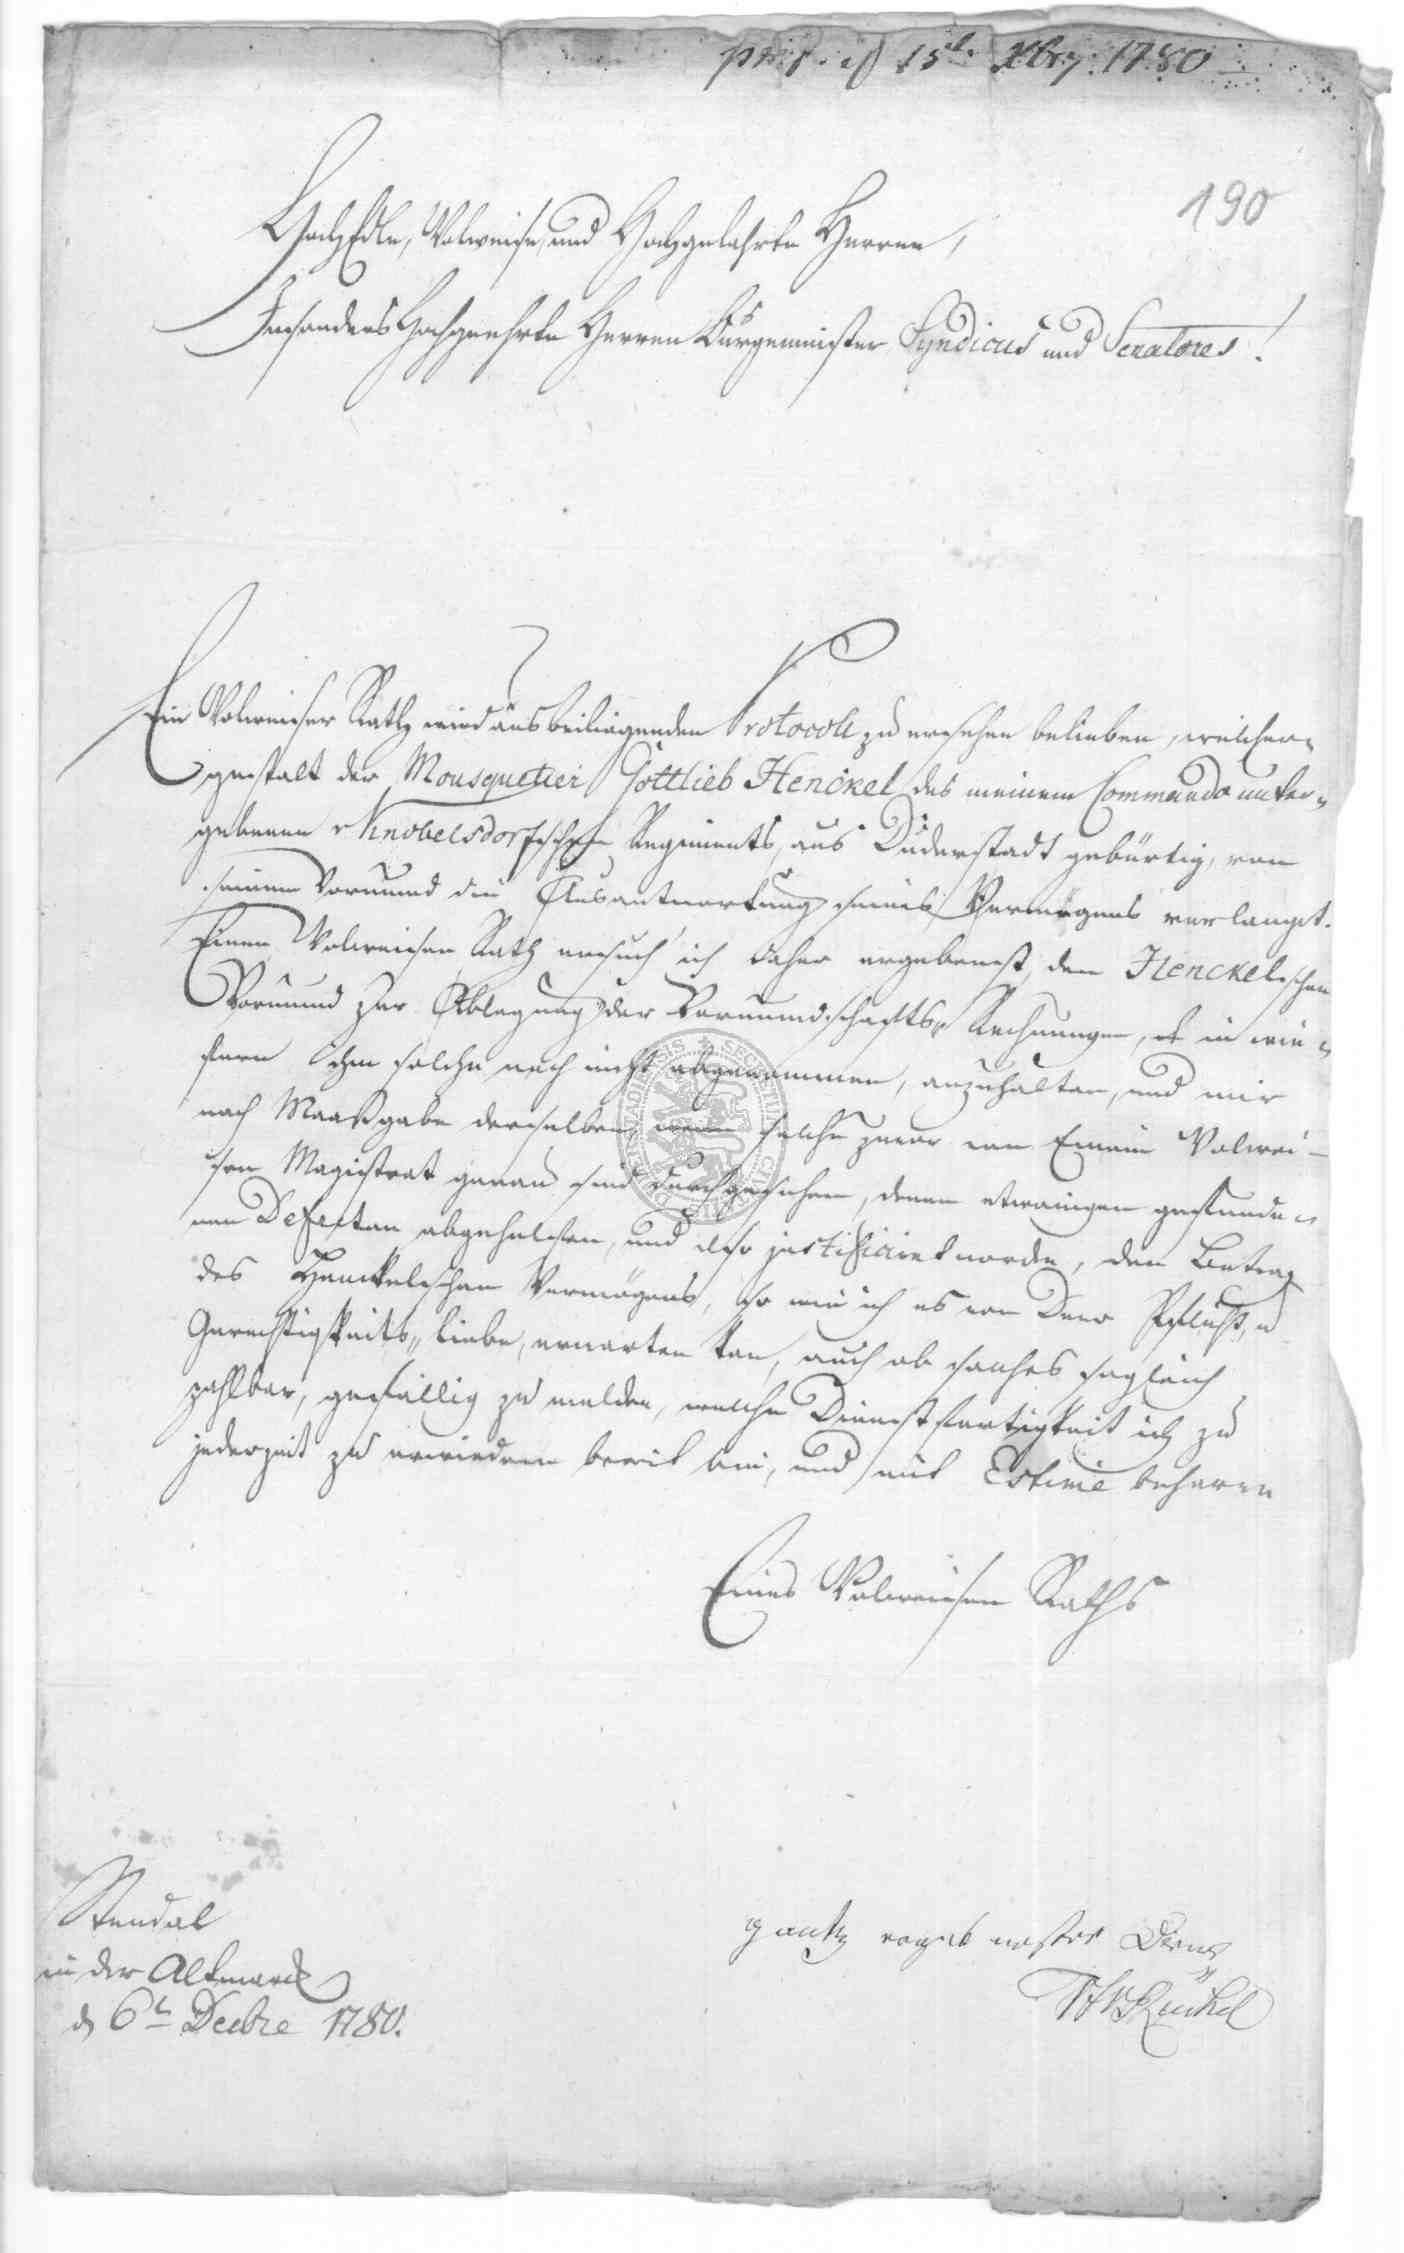 præs. d 15t. Xbr. 1780
190
HochEdle, Wolweise, und Hochgelahrte Herren,
Insonders Hochgeehrte Herren Bürgemeister Syndicus und Senatores!
Ein Wolweiser Rath wird aus beiliegenden Protocoll zu ersehen belieben, welcher„
gestalt der Mousquetier Gottlieb Henckel des meinem Commando unter„
gebenen v Knobelsdorfschen Regiments, aus Duderstadt gebürtig, von
seinem Vormund die Ausantwortung seines Vermögens verlangt.
Einen Wolweisen Rath ersuch ich daher ergebenst, den Henckelschen
Vormund zur Ablegung der Vormundschafts„ Rechnungen, in wie„
fern ihm solche noch nicht abgenommen, anzuhalten, und mir
nach Maaßgabe derselben, wenn solche zuvor von Einem Wolwei-
sen Magistrat genau sind durchgesehen, denen etwanigen gefunde„
nen Defecten abgeholfen, und also justificiret worden, den Betrag
des Henckelschen Vermögens, so wie ich es von Dero Pflicht, u
Gerechtigkeits„ liebe, erwarten kan, auch ob solches sogleich
zahlbar, gefällig zu melden, welche Dienstfertigkeit ich zu
jederzeit zu erwiedern bereit bin, und mit Estime beharre
Eines Wolweisen Raths
Stendal
in der Altmarck
d 6t Decbre 1780.
gantz ergebenster Diener